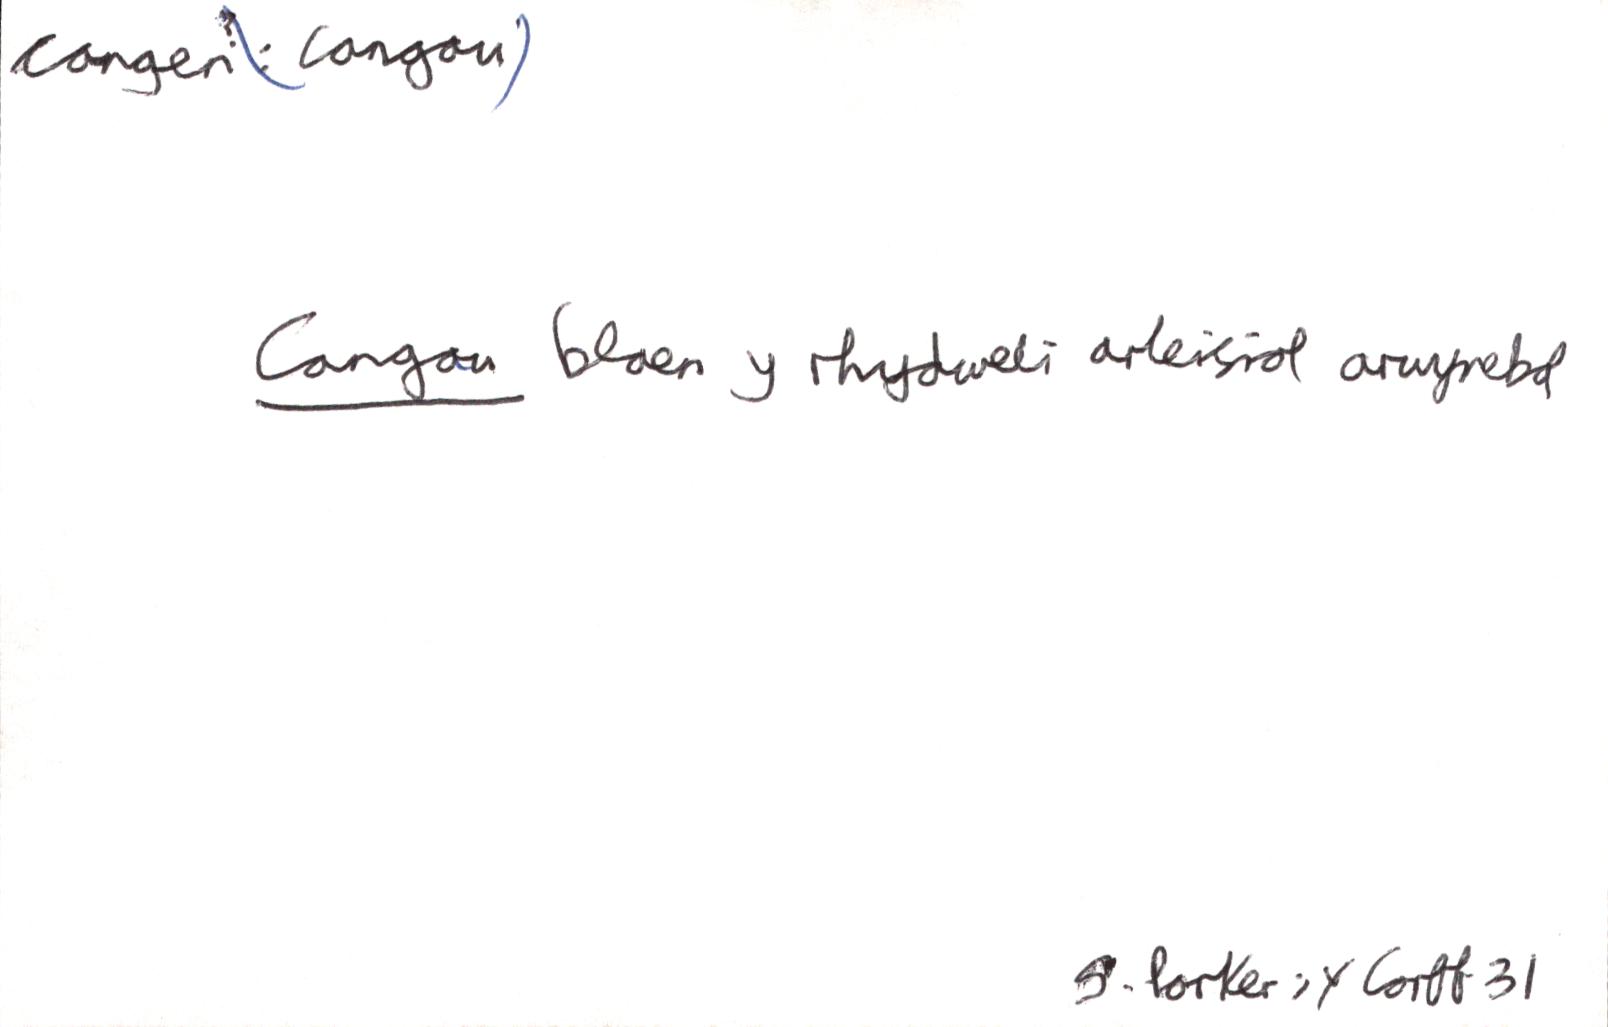 cangen (: cangau)
Cangau blaen y rhydweli arleisiol arwynebol
S. Parker: Y Corff 31